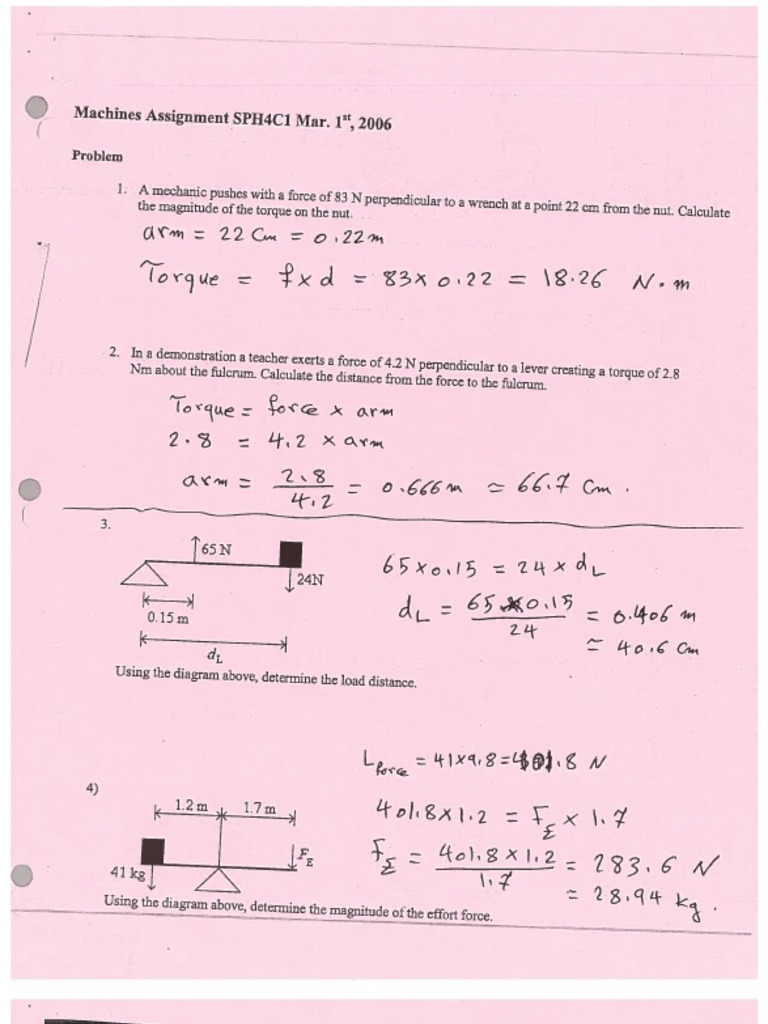 Machines Assignment SPH4C1 Mar. 1st, 2006
Problem
1. A mechanic pushes with a force of 83 N perpendicular to a wrench at a point 22 cm from the nut. Calculate
the magnitude of the torque on the nut.
arm = 22 Cm = 0.22 m
Torque = f x d = 83 x 0.22 = 18.26 N.m
2. In a demonstration a teacher exerts a force of 4.2 N perpendicular to a lever creating a torque of 2.8
Nm about the fulcrum. Calculate the distance from the force to the fulcrum.
Torque = force x arm
2.8 = 4.2 x arm
arm = 2.8 / 4.2 = 0.666 m ≃ 66.7 Cm.
3.
65 N
24N
0.15 m
dL
65 x 0.15 = 24 x dL
dL = 65 x 0.15 / 24 = 0.406 m
≃ 40.6 Cm
Using the diagram above, determine the load distance.
Lforce = 41 x 9.8 = 401.8 N
4)
1.2 m 1.7 m
401.8 x 1.2 = FE x 1.7
41 kg
FE
FE = 401.8 x 1.2 / 1.7 = 283.6 N
= 28.94 kg.
Using the diagram above, determine the magnitude of the effort force.